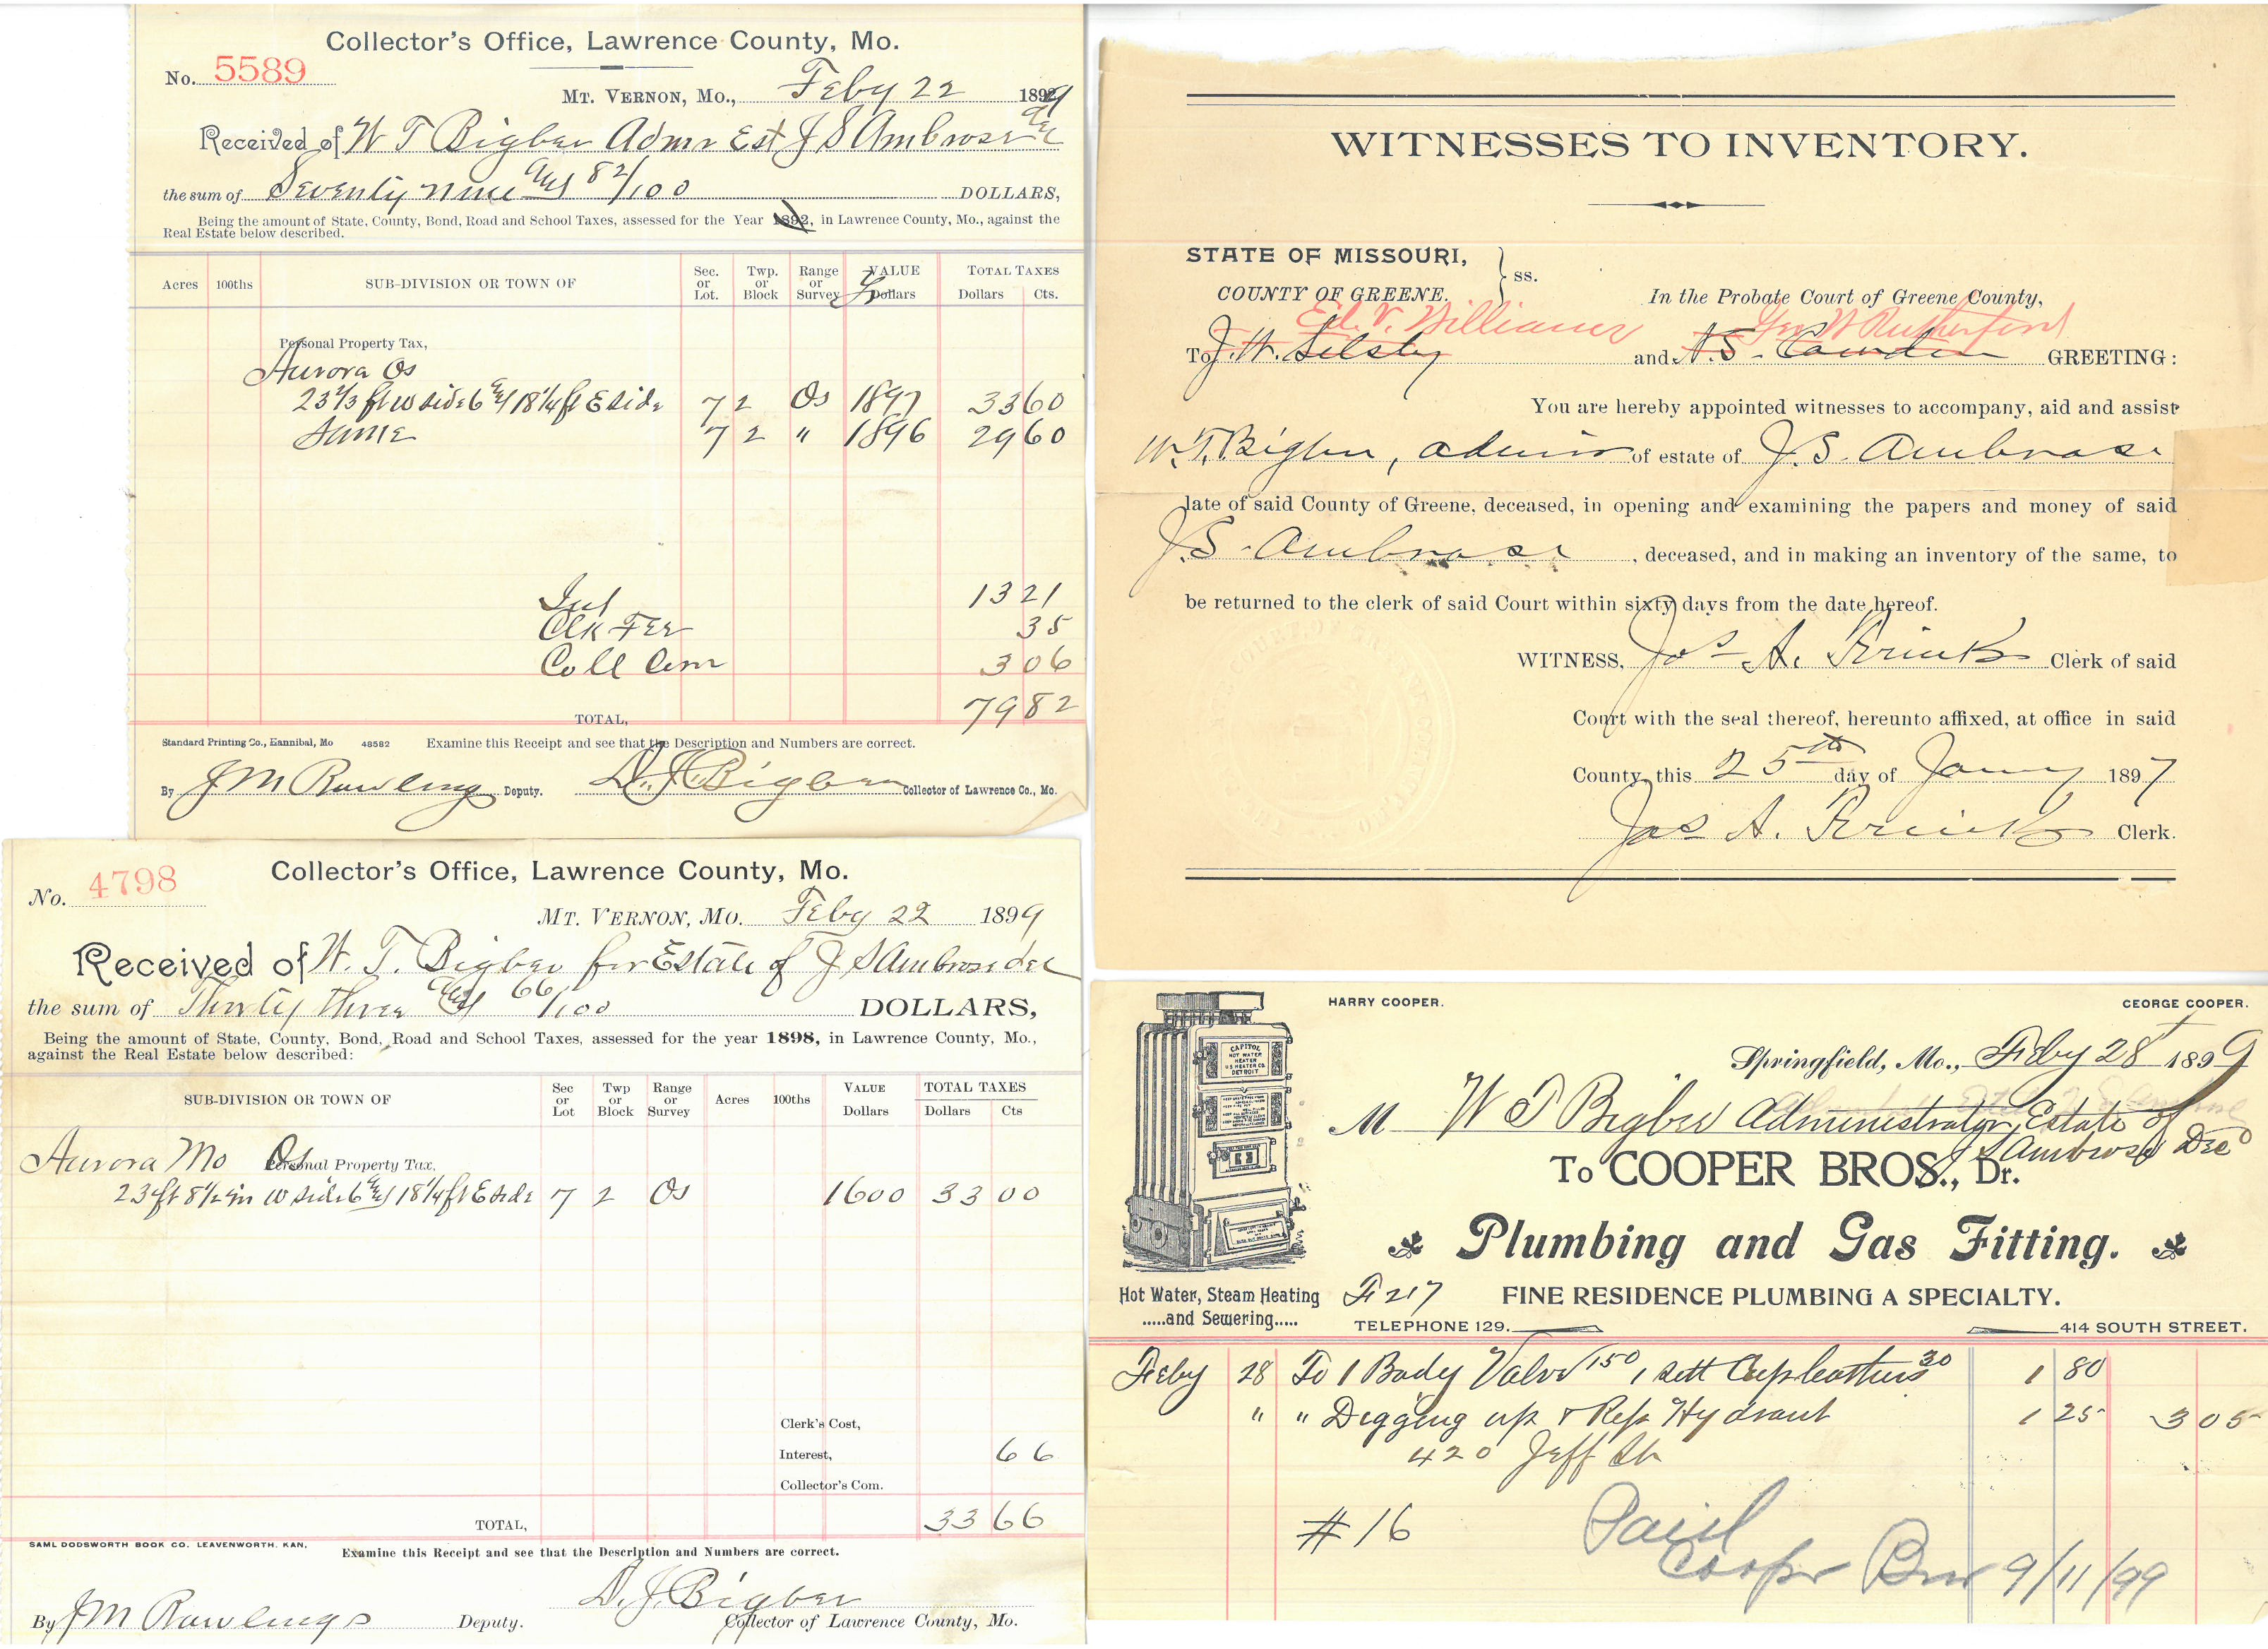 Collector's Office, Lawrence County, Mo.
No. 5589
MT. VERNON, MO., Feby 22 1899
Received of W T Bigbee Admr Est J S Ambrose dec
the sum of Seventy nine and 82/100 DOLLARS,
Being the amount of State, County, Bond, Road and School Taxes, assessed for the Year 1892, in Lawrence County, Mo., against the
Real Estate below described.
Acres 100ths SUB-DIVISION OR TOWN OF Sec. or Lot. Twp. or Block Range or Survey VALUE Dollars TOTAL TAXES Dollars Cts.
Personal Property Tax,
Aurora Os
23 2/3 ft W side 6 & 18 1/4 ft E side 7 2 Os 1897 33 60
Same 7 2 " 1896 29 60
Int 13 21
Clk Fee 35
Coll Com 3 06
TOTAL, 79 82
Standard Printing Co., Hannibal, Mo 48582 Examine this Receipt and see that the Description and Numbers are correct.
By J M Rawlings Deputy. D. J. Bigbee Collector of Lawrence Co., Mo.
Collector's Office, Lawrence County, Mo.
No. 4798
MT. VERNON, MO. Feby 22 1899
Received of W. T. Bigbee for Estate of J S Ambrose dec
the sum of Thirty three and 66/100 DOLLARS,
Being the amount of State, County, Bond, Road and School Taxes, assessed for the year 1898, in Lawrence County, Mo.,
against the Real Estate below described:
SUB-DIVISION OR TOWN OF Sec or Lot Twp or Block Range or Survey Acres 100ths VALUE Dollars TOTAL TAXES Dollars Cts
Aurora Mo Os Personal Property Tax,
23 ft 8 1/2 in W side 6 & 18 1/4 ft E side 7 2 Os 1600 33 00
Clerk's Cost,
Interest, 66
Collector's Com.
TOTAL, 33 66
SAML DODSWORTH BOOK CO. LEAVENWORTH. KAN, Examine this Receipt and see that the Description and Numbers are correct.
By J M Rawlings Deputy. D. J. Bigbee Collector of Lawrence County, Mo.
WITNESSES TO INVENTORY.
STATE OF MISSOURI,
COUNTY OF GREENE. ss.
In the Probate Court of Greene County,
Ed. V. Williams Geo W Rutherford
To J. W. Silsby and N. S. Cowden GREETING:
You are hereby appointed witnesses to accompany, aid and assist
W. T. Bigbee, admin of estate of J. S. Ambrose
late of said County of Greene, deceased, in opening and examining the papers and money of said
J. S. Ambrose, deceased, and in making an inventory of the same, to
be returned to the clerk of said Court within sixty days from the date hereof.
WITNESS, Jos A. Frink Clerk of said
Court with the seal thereof, hereunto affixed, at office in said
County, this 25th day of Jany 1897
Jos A. Frink Clerk.
HARRY COOPER. GEORGE COOPER.
Springfield, Mo., Feby 28 1899
M W T Bigbee Administrator Estate of
J S Ambrose Decd
To COOPER BROS., Dr.
Plumbing and Gas Fitting.
CAPITOL
HOT WATER
HEATER
U.S HEATER CO.
DETROIT
Hot Water, Steam Heating
.....and Sewering.....
F 217 FINE RESIDENCE PLUMBING A SPECIALTY.
TELEPHONE 129. 414 SOUTH STREET.
Feby 28 To 1 Body Valve 150 1 sett Cupleathers 30 1 80
" " Digging up & Rep Hydrant 1 25 3 05
420 Jeff St
#16
Paid
Cooper Bros 9/11/99